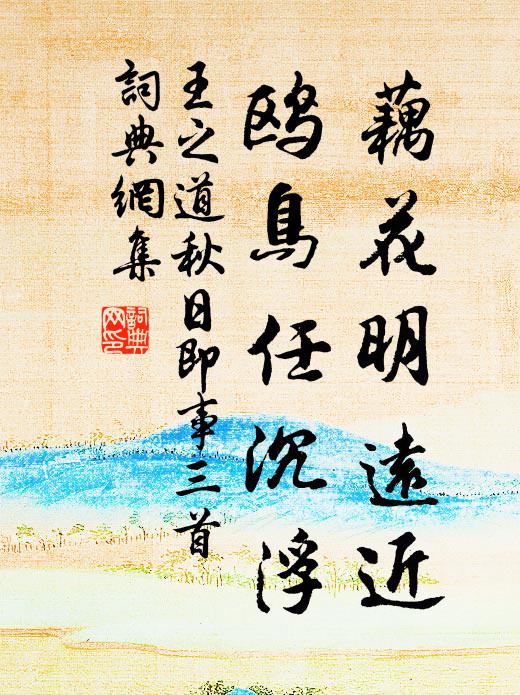 藕花明遠近
鸥鳥任沉浮
王之道秋日即事三首
詞典網集
詞典网印